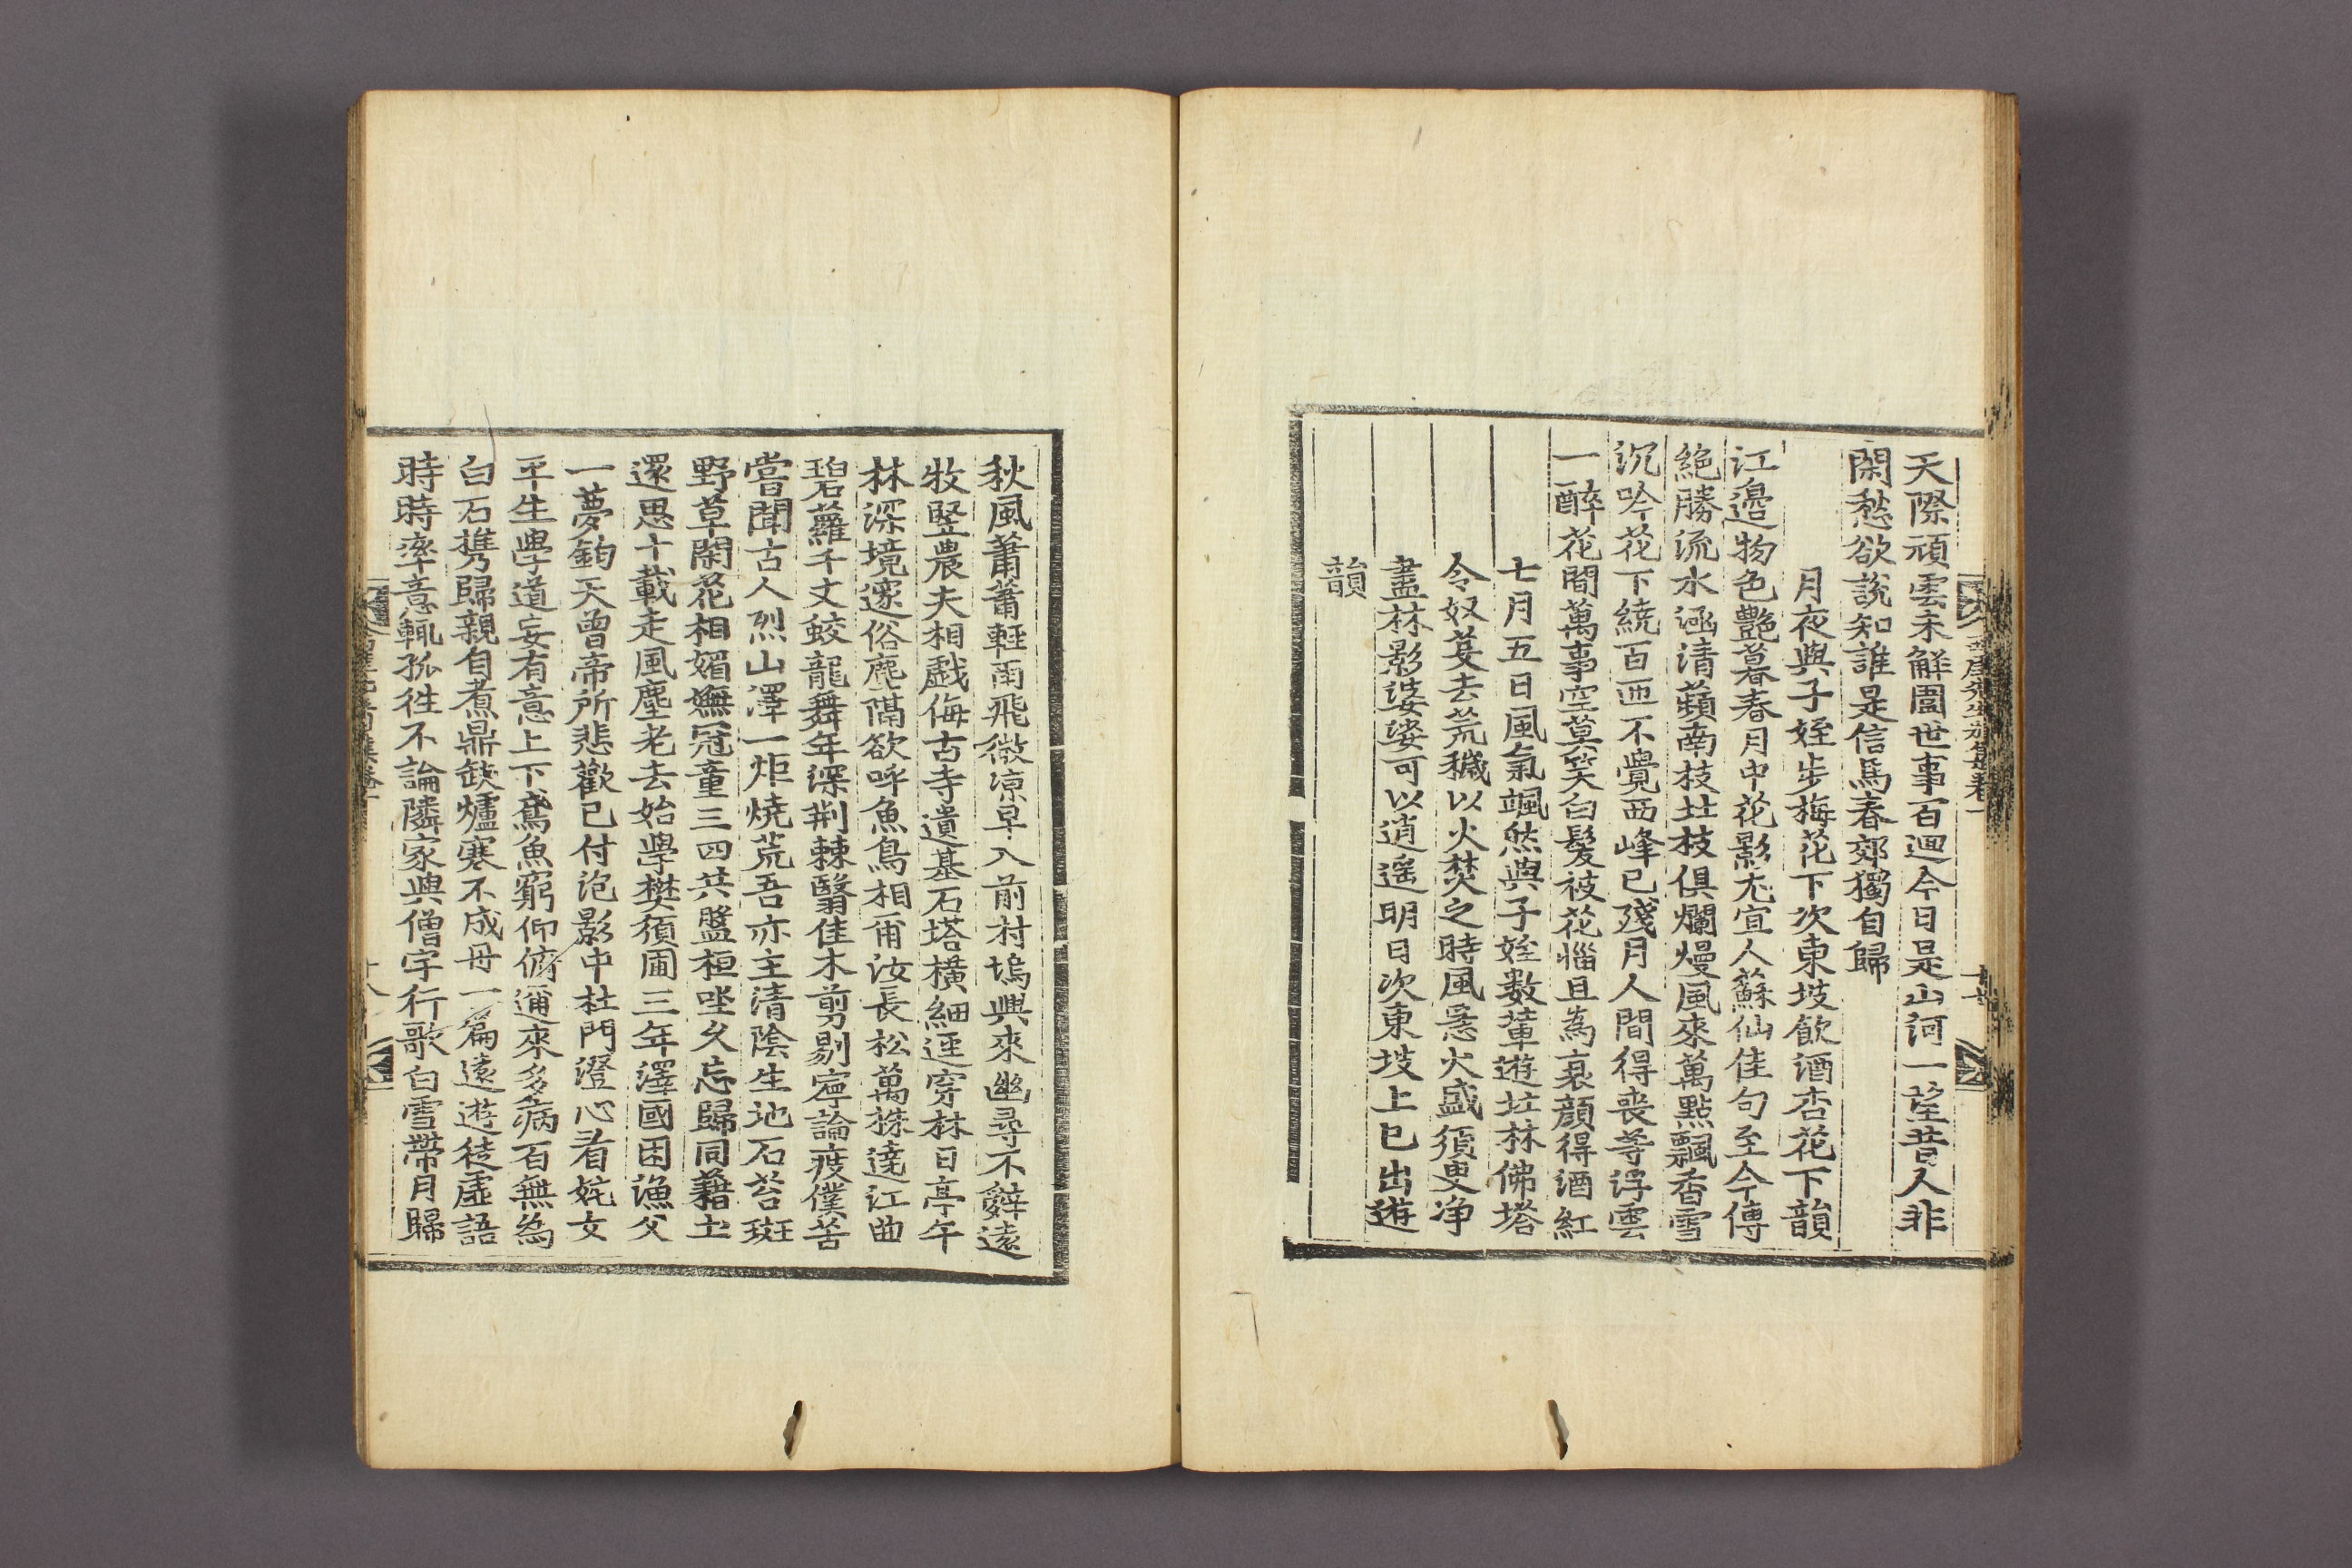 天際頑雲未觧圍世事百迴今日是山河一望昔人非
閑愁欲說知誰是信馬春郊獨自歸
月夜與子姪步梅花下次東坡飮酒杏花下韻
江邉物色艶暮春月中花影尤宜人蘇仙佳句至今傳
絶勝流水涵清蘋南枝北枝俱爛熳風來萬點飄香雪
沉吟花下繞百匝不覺西峰已殘月人間得喪等浮雲
一醉花間萬事空莫笑白髪被花惱且為衰顔得酒紅
七月五日風氣颯然與子姪数軰遊北林佛塔
令奴芟去荒穢以火焚之時風急火盛須臾净
盡林影婆娑可以逍遥明日次東坡上巳出遊
韻
秋風蕭蕭輕雨飛微凉早入前村塢興來幽尋不辭遠
牧竪農夫相戱侮古寺遺基石塔橫細逕穿林日亭午
林深境邃俗塵隔欲呼魚鳥相甭汝長松萬株遶江曲
碧蘿千丈蛟龍舞年深荆棘翳佳木剪剔寧論疲僕苦
嘗聞古人烈山澤一炬燒荒吾亦主清陰生地石苔斑
野草閑花相媚嫵冠童三四共盤桓坐久忘歸同藉土
還思十載走風塵老去始學樊須圃三年澤國困漁父
一夢鈞天曾帝所悲歡已付泡影中杜門澄心看姹女
平生學道妄有意上下鳶魚窮仰俯邇來多病百無為
白石携歸親自煮鼎缺爐寒不成丹一篇遠遊徒虛語
時時率意輒孤徃不論隣家與僧宇行歌白雪帶月歸